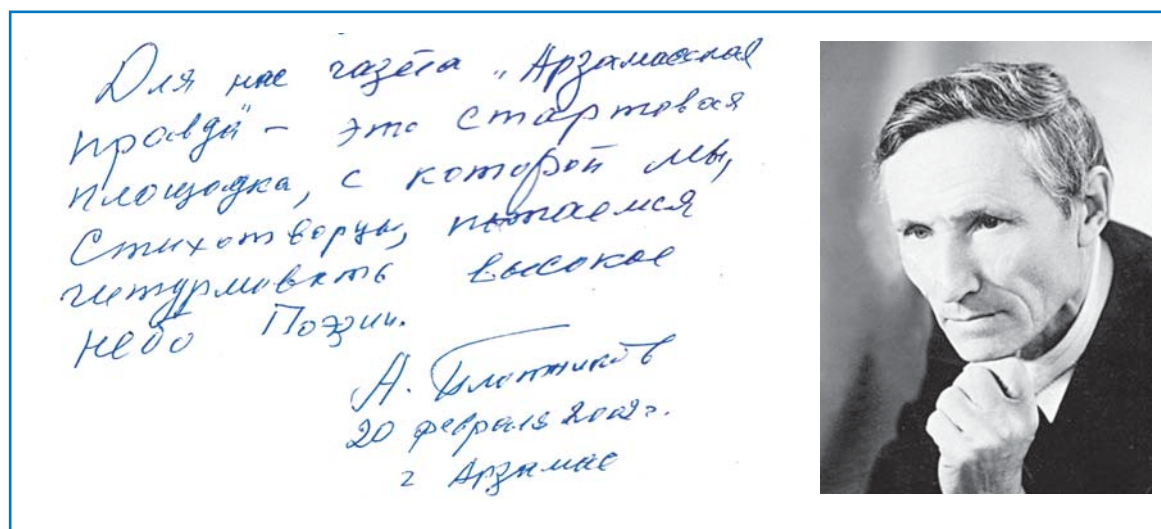 Для нас газета „Арзамасская
правда" – это стартовая
площадка, с которой мы,
стихотворцы, пытаемся
штурмовать высокое
небо Поэзии.
А. Плотников
20 февраля 2002 г.
г Арзамас